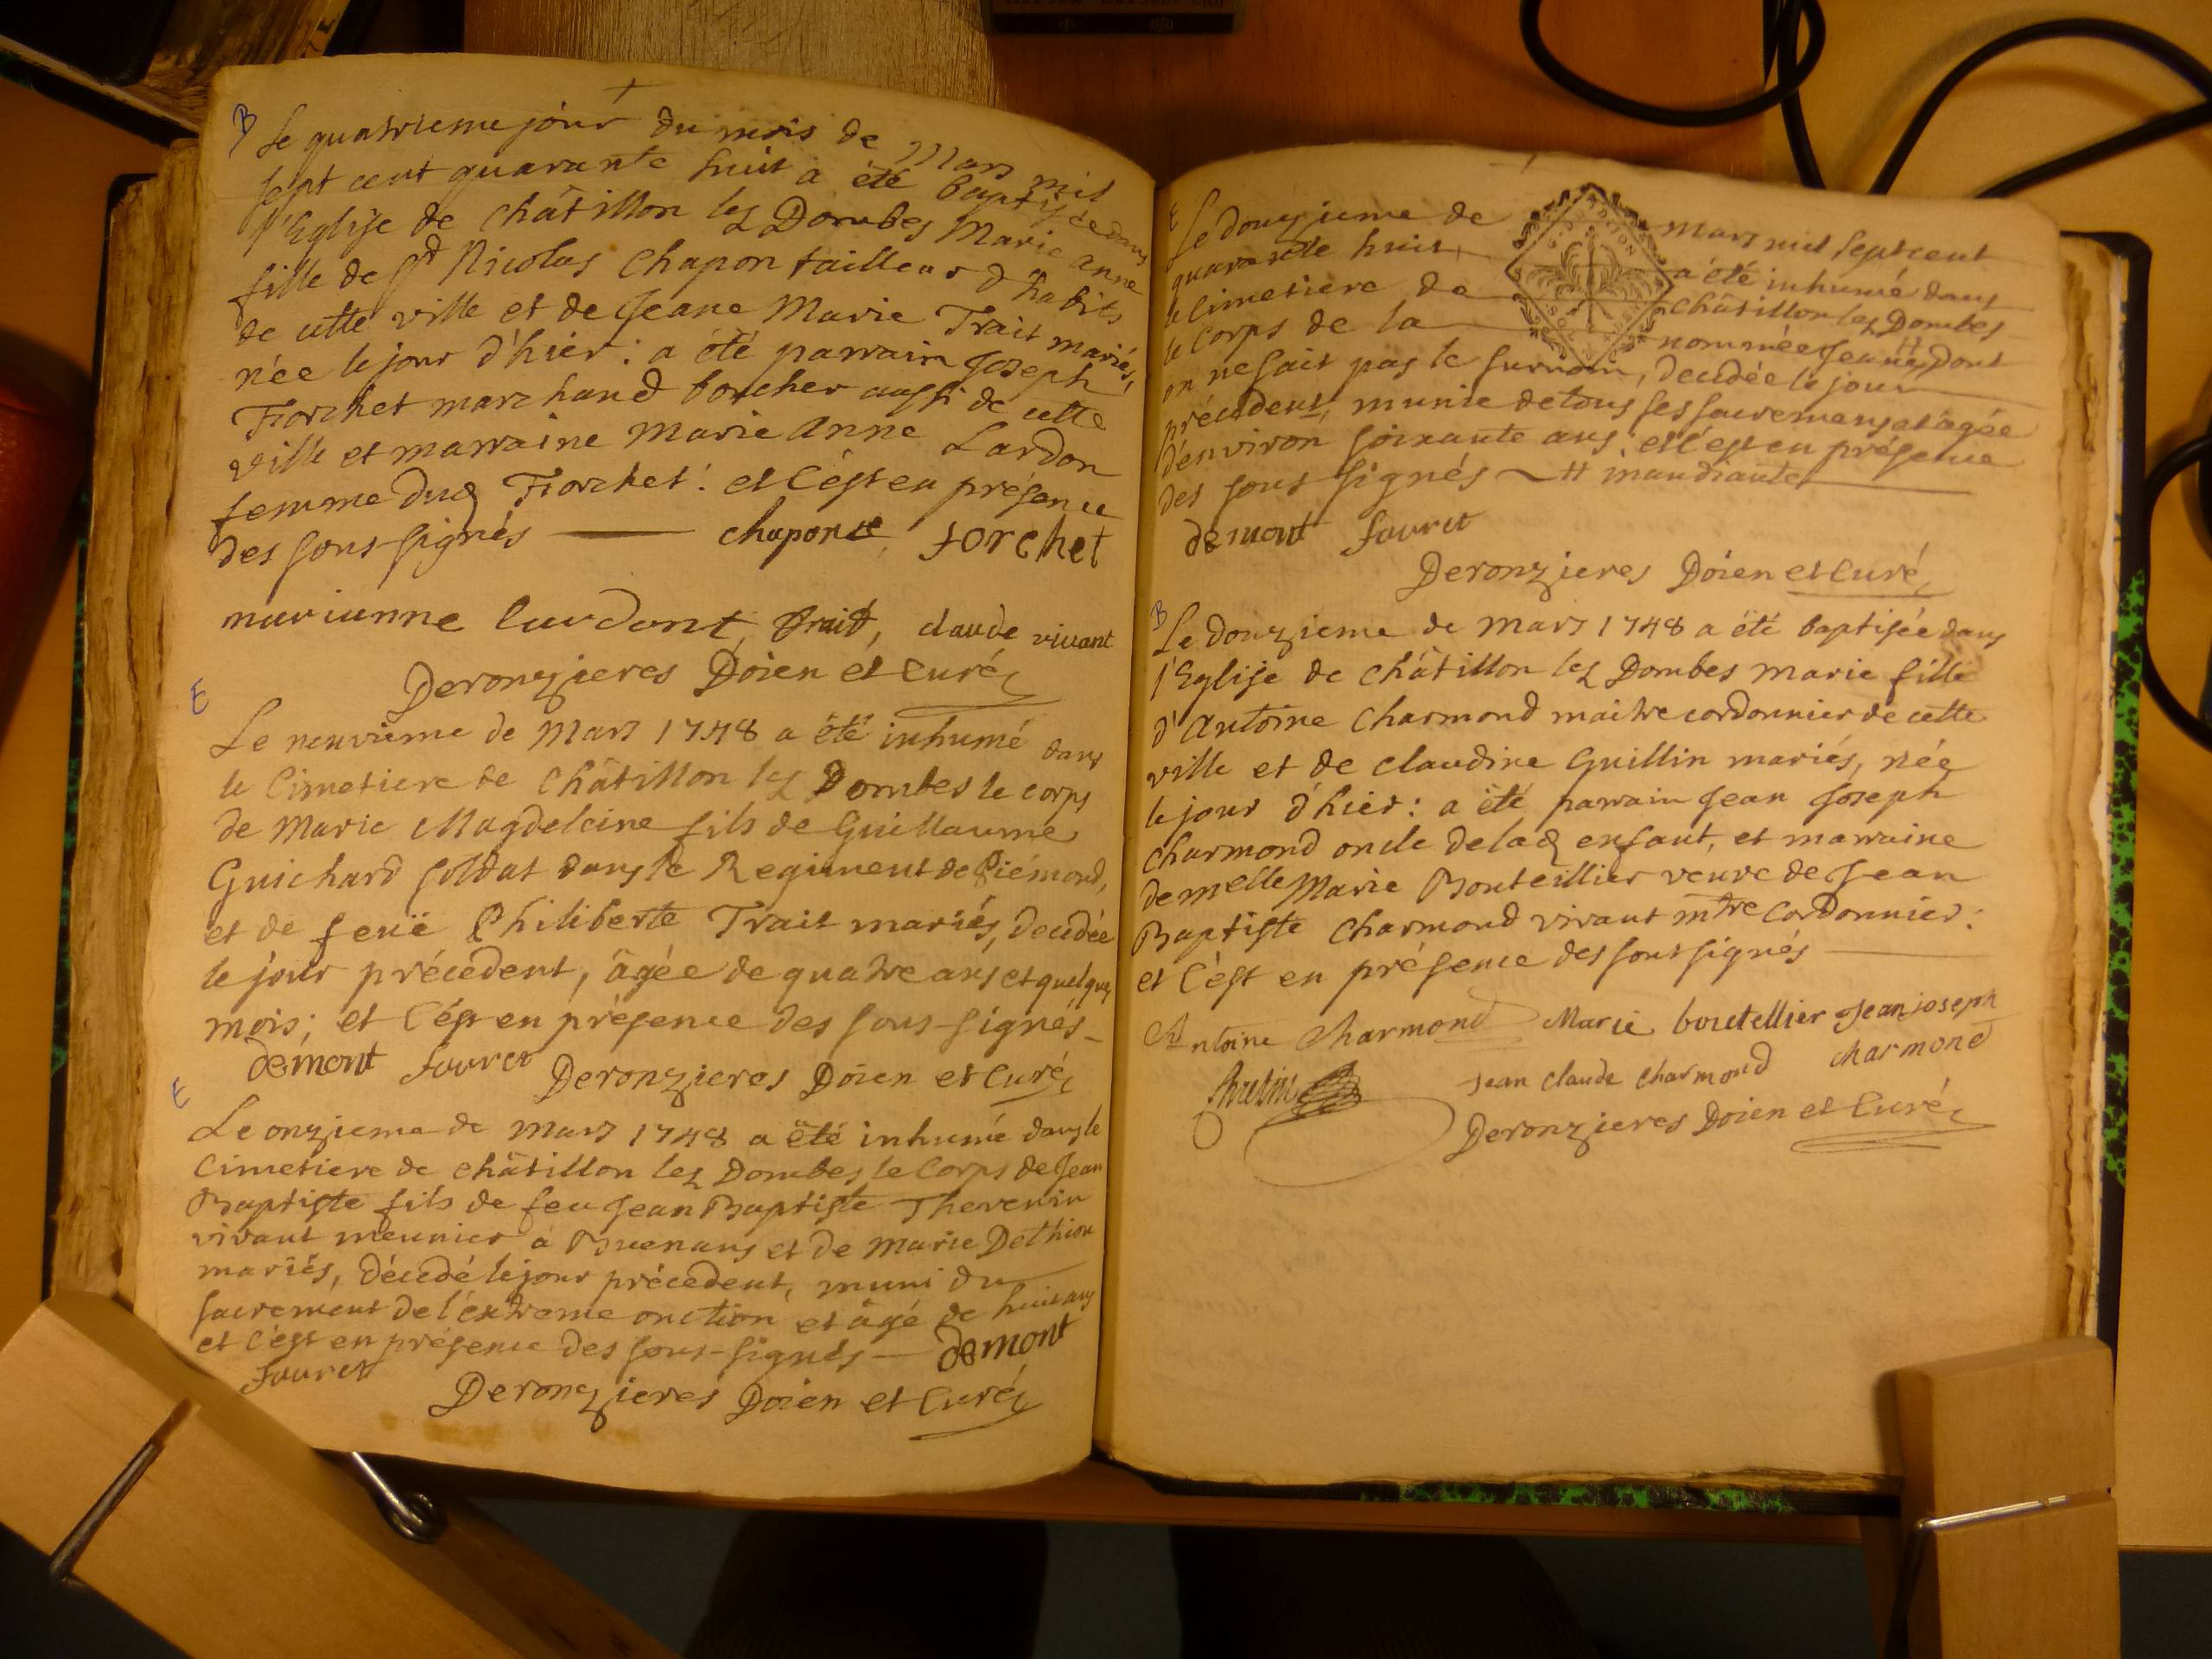 B
Le quatrieme jour du mois de Mars mil
sept cent quarante huit a été baptisée dans
l'Eglise de Châtillon lez Dombes Marie Anne
fille de Sr Nicolas Chapon tailleur d'habits
de cette ville et de Jeane Marie Trait mariés,
née le jour d'hier: a été parrain Joseph
Forchet marchand boucher aussi de cette
ville et marraine Marie Anne Lardon
femme dud Forchet: et c'est en présence
des sous signés — chapon forchet
marianne lardont, trait, claude vivant
Deronzieres Doien et Curé
E
Le neuvieme de Mars 1748 a été inhumé dans
le Cimetiere de Châtillon lez Dombes le corps
de Marie Magdeleine fils de Guillaume
Guichard soldat dans le Regiment de Piémond,
et de feuë Philiberte Trait mariés, decedée
le jour précedent, âgée de quatre ans et quelques
mois; et c'est en présence des sous-signés-
demont fauret Deronzieres Doien et Curé
E
Le onzieme de Mars 1748 a été inhumé dans le
Cimetiere de châtillon lez Dombes le Corps de Jean
Baptiste fils de feu Jean Baptiste Thevenin
vivant meunier à Buenans et de Marie Dethion
mariés, décedé le jour précedent, muni du
sacrement de l'extreme onction et âgé de huit ans
et c'est en présence des sous-signés — demont
fauret
Deronzieres Doien et Curé
E
Le douzieme de Mars mil sept cent
quarante huit a été inhumé dans
le Cimetiere de Châtillon lez Dombes
le Corps de la nommée Jeane H, dont
on ne sait pas le surnom, decedée le jour
précedent, munie de tous ses sacremens et âgée
d'environ soixante ans; et c'est en présence
des sous signés ~ H mandiante
demont fauret
Deronzieres Doien et Curé
B
Le douzieme de Mars 1748 a été baptisée dans
l'Eglise de Châtillon lez Dombes Marie fille
d'Antoine Charmond maitre cordonnier de cette
ville et de Claudine Guillin mariés, née
le jour d'hier: a été parrain Jean Joseph
Charmond oncle de lad enfant, et marraine
demelle Marie Bouteillier veuve de Jean
Baptiste Charmond vivant mtre Cordonnier:
et c'est en présence des sous signés
Antoine Charmond Marie boutellier Jean joseph
charmond
Jean Claude Charmond
Deronzieres Doien et Curé